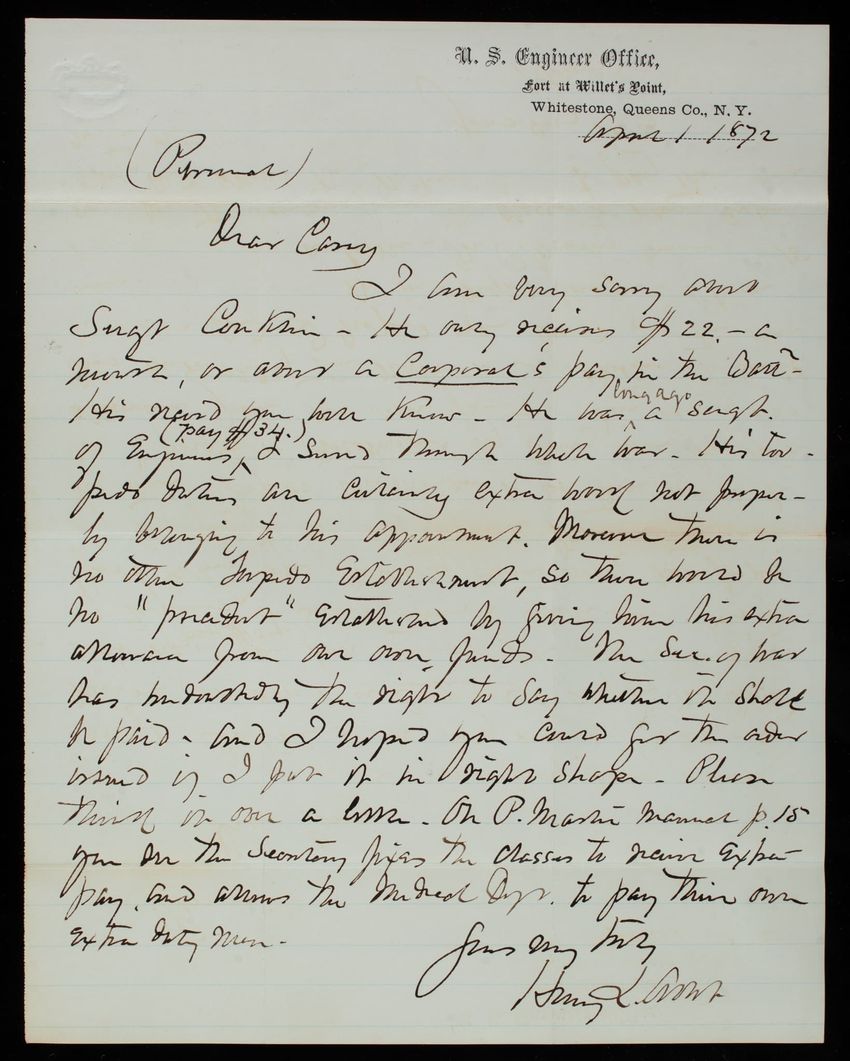 U. S. Engineer Office,
Fort at Willet's Point,
Whitestone, Queens Co., N. Y.
April 1 1872
(Personal)
Dear Casey
I am very sorry about
Sergt Conklin - He only receives $22.- a
month, or about a Corporal's pay in the Batt-
long ago
His record you well know - He was a sergt.
(pay $34.)
of Engineers, & served through whole war - His tor-
pedo duties are certainly extra work not proper-
ly belonging to his appointment. Moreover there is
no other Torpedo Establishment, so there would be
no "precedent" established by giving him his extra
allowance from our own funds. The Sec. of War
has undoubtedly the right to say whether it shall
be paid - and I hoped you could get the order
issued if I put it in right shape - Please
think it over a little - On P. Master manual p. 15
you see the Secretary fixes the classes to receive extra
pay, and allows the Medical Dept. to pay their own
extra duty men -
Yours very truly
Henry L. Abbot